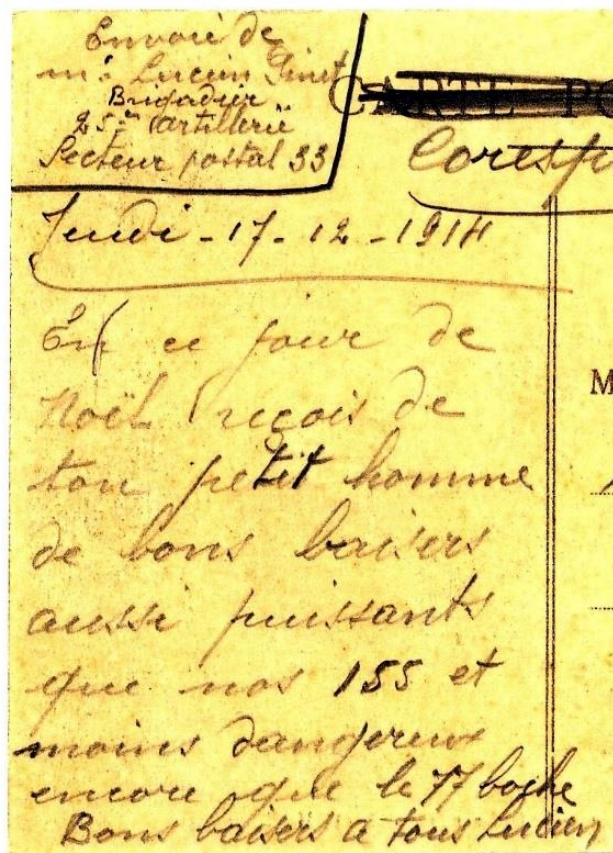 Envoie de
Mr Lucien Pinet
Brigadier
25e artillerie
Secteur postal 33
CARTE PO
Corespo
Jeudi - 17 - 12 - 1914
En ce jour de
Noël reçois de
ton petit homme
de bons baisers
aussi puissants
que nos 155 et
moins dangereux
encore que le 77 boche
Bons baisers a tous Lucien
M